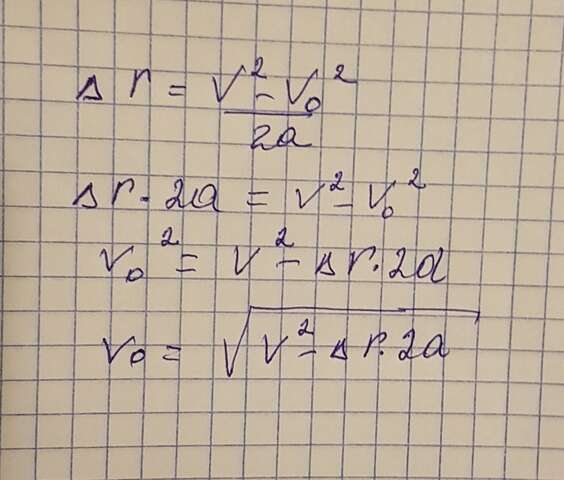 Δr = (V² - V₀²) / 2a
Δr · 2a = V² - V₀²
V₀² = V² - Δr · 2a
V₀ = √(V² - Δr · 2a)